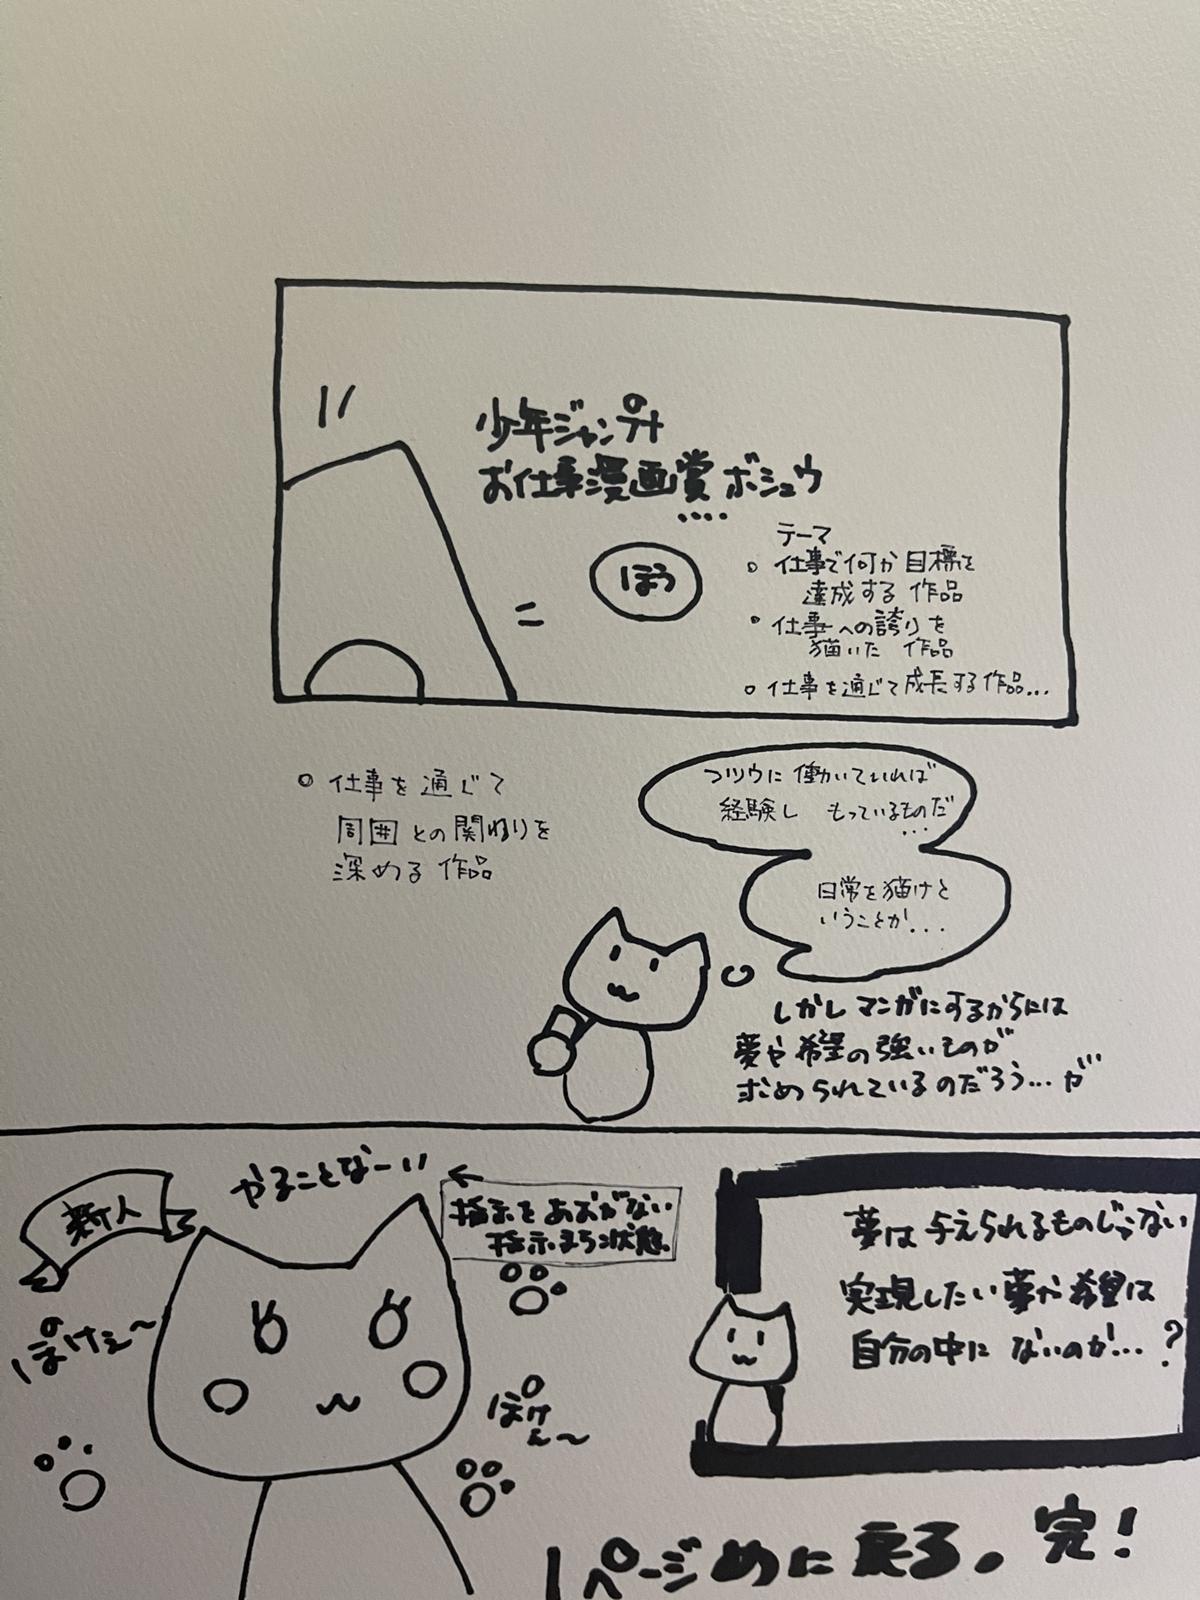 少年ジャンプ+
お仕事漫画賞 ボシュウ
....
ほう
テーマ
○ 仕事で何か目標を
達成する 作品
○ 仕事への誇りを
描いた 作品
○ 仕事を通じて成長する作品...
○ 仕事を通じて
周囲との関わりを
深める 作品
フツウに働いていれば
経験し もっているものだ
...
日常を描けと
いうことか...
しかしマンガにするからには
夢や希望の強いものが
求められているのだろう...が
新人
やることなーい
←
指示をあおがない
指示まち状態。
ぽけぇ〜
ぽけ
ん〜
夢は与えられるものじゃない
実現したい夢や希望は
自分の中に ないのか...?
1ページめに戻る。完!